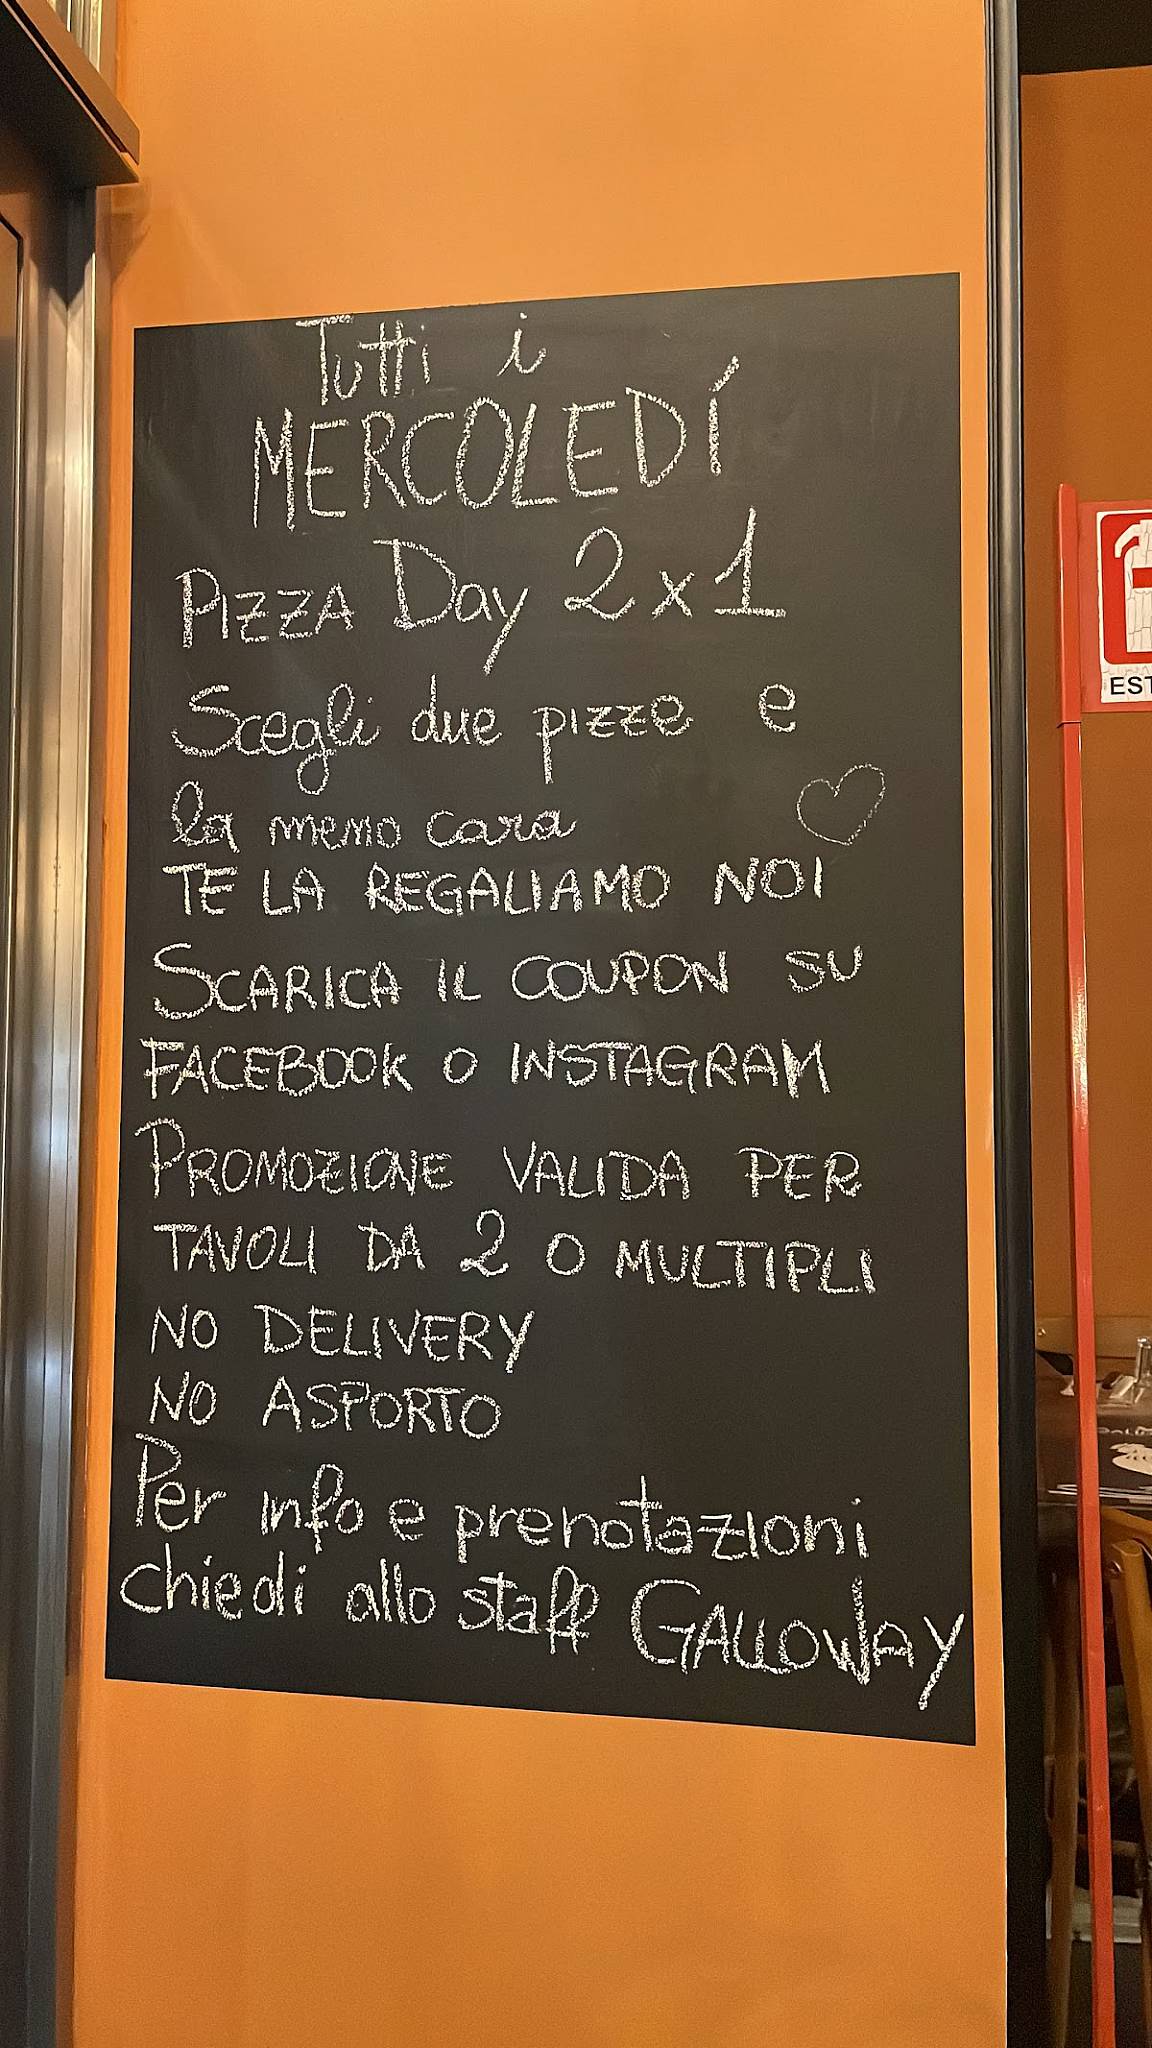 Tutti i
MERCOLEDÍ
PIZZA Day 2x1
Scegli due pizze e
la meno cara
TE LA REGALIAMO NOI
SCARICA IL COUPON SU
FACEBOOK O INSTAGRAM
PROMOZIONE VALIDA PER
TAVOLI DA 2 O MULTIPLI
NO DELIVERY
NO ASPORTO
Per info e prenotazioni
chiedi allo staff GALLOWAY
EST